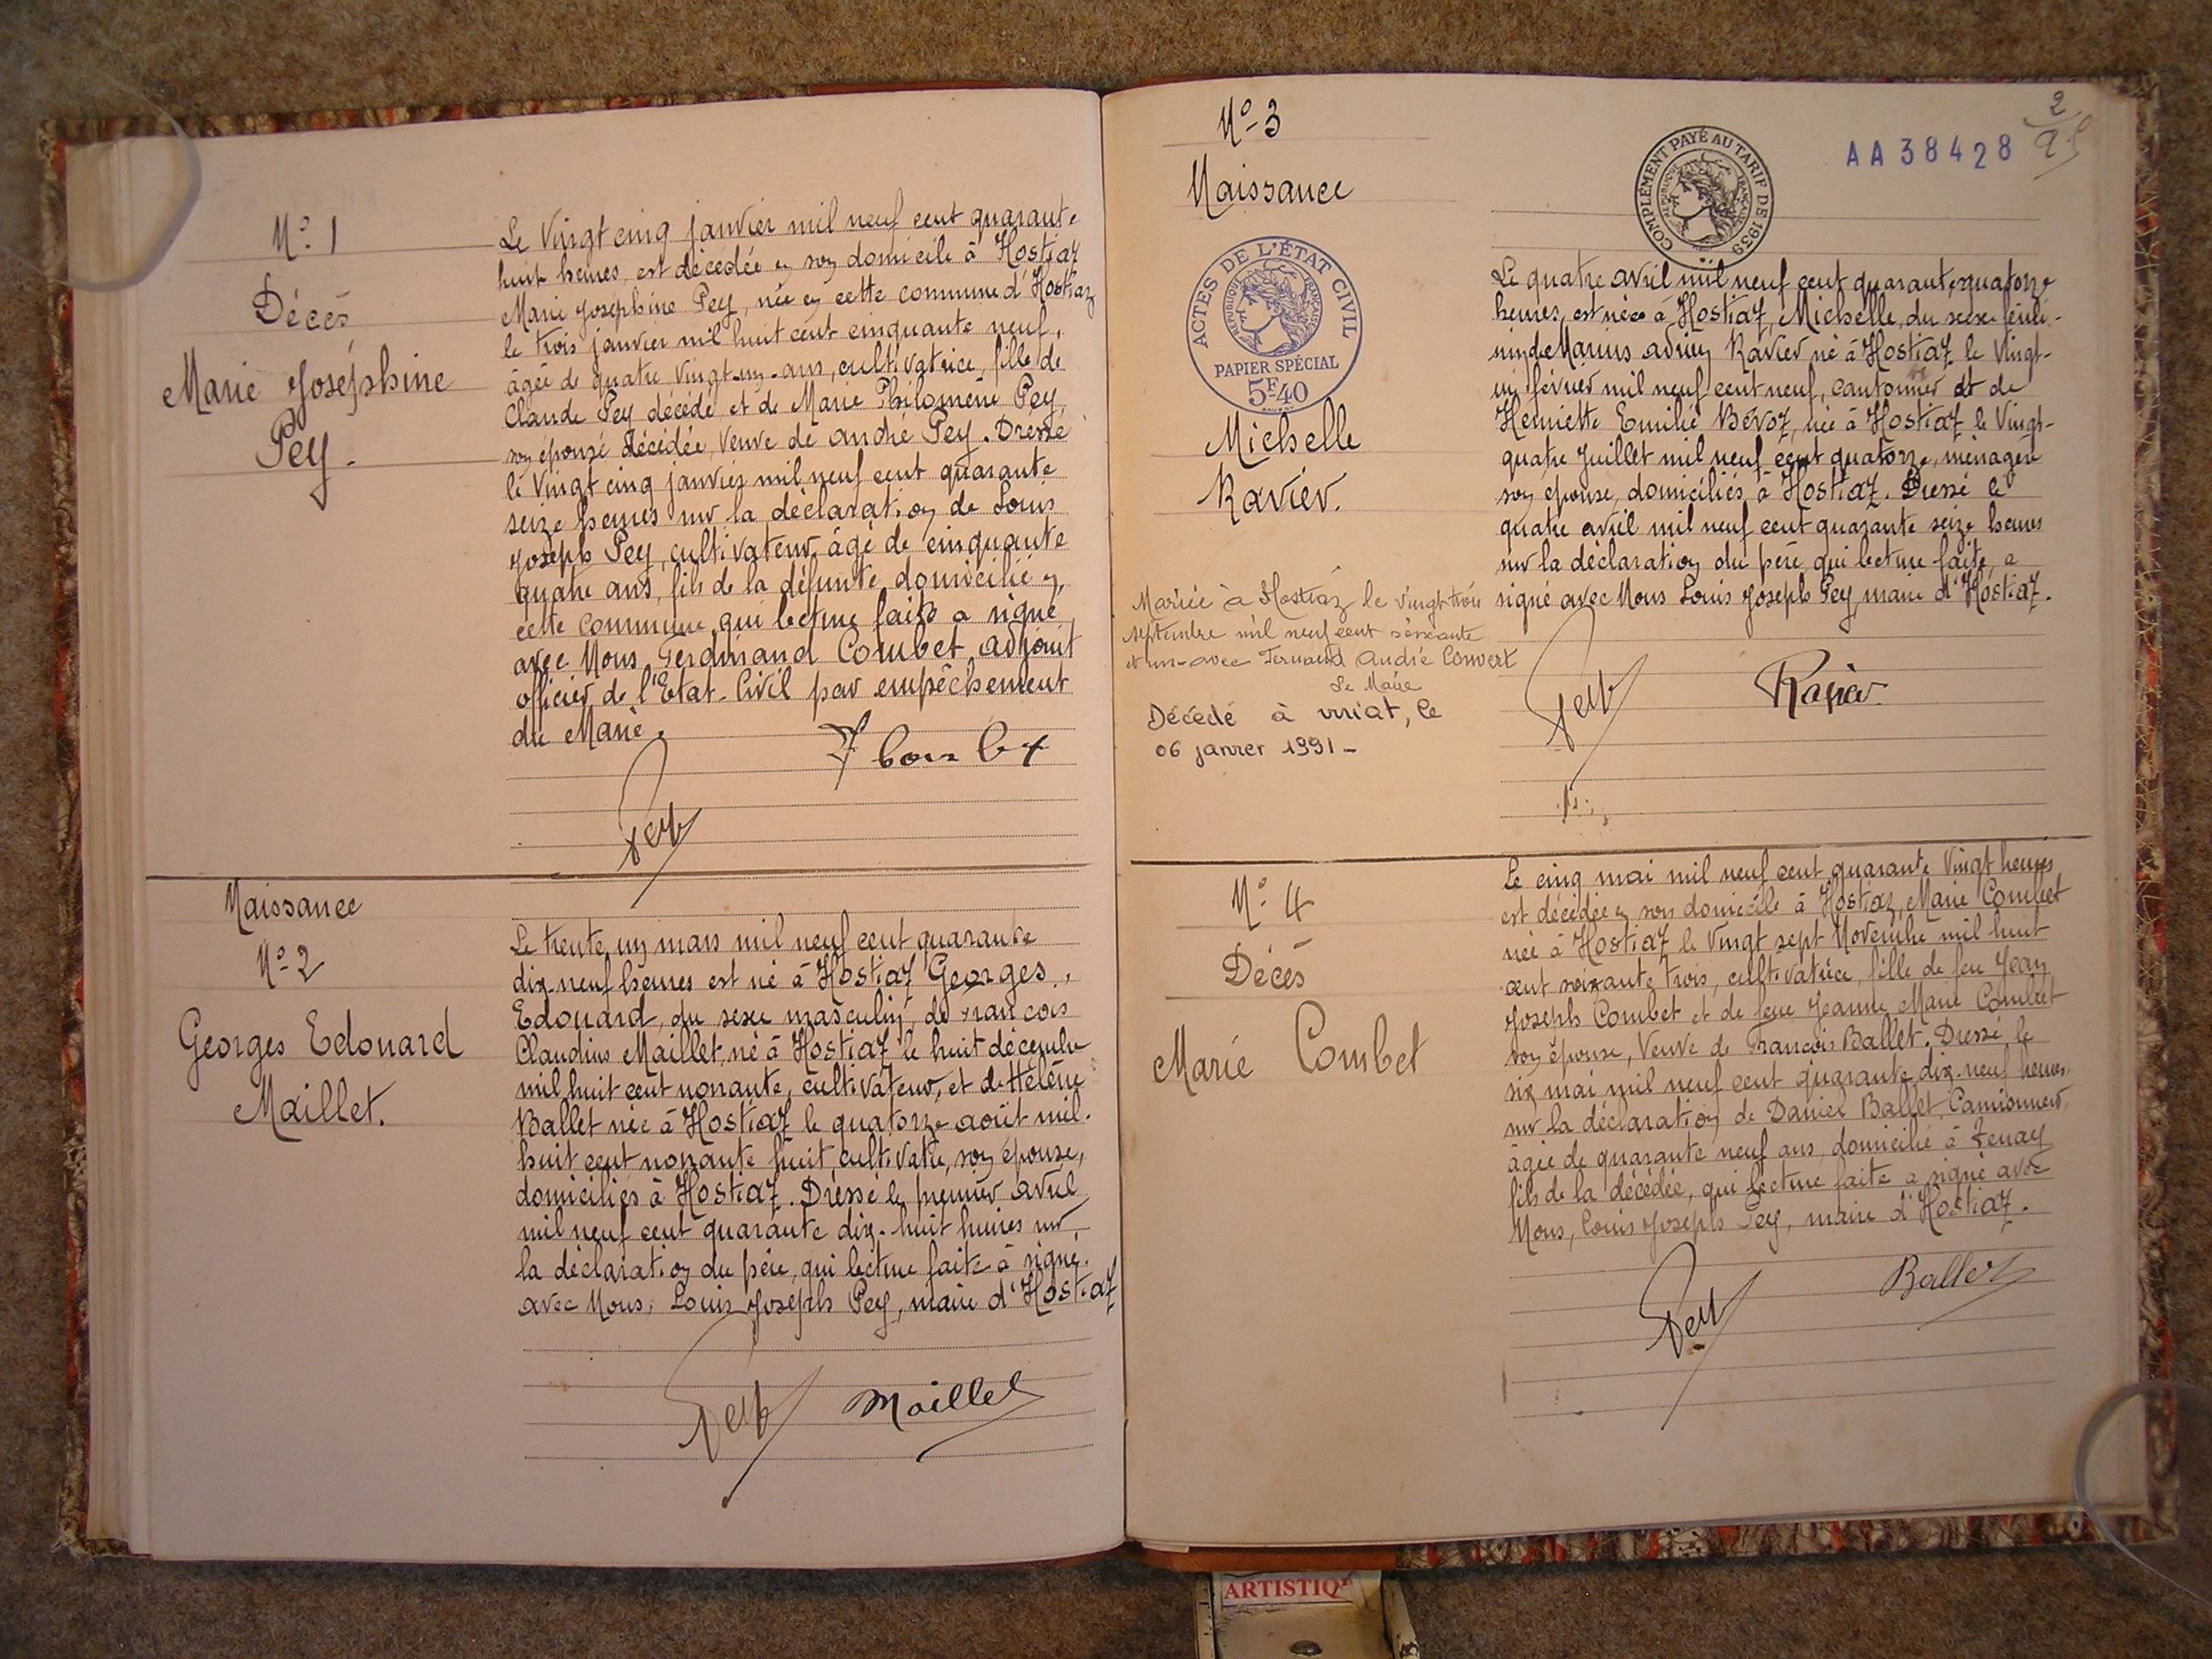 No. 1
Décès
Marie Joséphine
Pey.
Le Vingt cinq janvier mil neuf cent quarante
huit heures, est décédée en son domicile à Hostiaz
Marie Joséphine Pey, née en cette commune d'Hostiaz
le trois janvier mil huit cent cinquante neuf,
âgée de quatre vingt-un-ans, cultivatrice, fille de
Claude Pey décédé et de Marie Philomène Pey,
son épouse décédée, Veuve de André Pey. Dressé
le Vingt cinq janvier mil neuf cent quarante
seize heures sur la déclaration de Louis
Joseph Pey, cultivateur, âgé de cinquante
quatre ans, fils de la défunte, domicilié en
cette commune, qui lecture faite a signé
avec Nous Ferdinand Combet, adjoint
officier de l'Etat-Civil par empêchement
du Maire.
F Combet
Pey
Naissance
No. 2
Georges Edouard
Maillet.
Le trente un mars mil neuf cent quarante
dix-neuf heures est né à Hostiaz Georges,
Edouard, du sexe masculin, de François
Claudius Maillet, né à Hostiaz le huit décembre
mil huit cent nonante, cultivateur, et de Hélène
Ballet née à Hostiaz le quatorze août mil-
huit cent nonante huit, cultivatrice, son épouse,
domiciliés à Hostiaz. Dressé le premier avril
mil neuf cent quarante dix-huit heures sur
la déclaration du père, qui lecture faite à signé
avec Nous, Louis Joseph Pey, maire d'Hostiaz
Pey Maillet
2
AA38428
COMPLÉMENT PAYÉ AU TARIF DE 1939
RÉPUBLIQUE FRANÇAISE
No. 3
Naissance
ACTES DE L'ÉTAT CIVIL
RÉPUBLIQUE FRANÇAISE
PAPIER SPÉCIAL
5F40
Michelle
Ravier.
Mariée à Hostiaz le vingt-trois
septembre mil neuf cent soixante
et un-avec Fernand André Convert
Le Maire
Décédé à viriat, le
06 janvier 1991-
Le quatre avril mil neuf cent quarante, quatorze
heures, est née à Hostiaz, Michelle, du sexe fémi-
nin, de Marius Adrien Ravier né à Hostiaz le Vingt-
un février mil neuf cent neuf, Cantonnier et de
Henriette Emilie Bévoz, née à Hostiaz le Vingt-
quatre Juillet mil neuf cent quatorze, ménagère
son épouse, domiciliés à Hostiaz. Dressé le
quatre avril mil neuf cent quarante seize heures
sur la déclaration du père, qui lecture faite, a
signé avec Nous Louis Joseph Pey, maire d'Hostiaz.
Pey Ravier
No. 4
Décès
Marie Combet
Le cinq mai mil neuf cent quarante Vingt heures
est décédée en son domicile à Hostiaz, Marie Combet
née à Hostiaz le Vingt sept Novembre mil huit
cent soixante trois, cultivatrice, fille de feu Jean
Joseph Combet et de feue Jeanne Marie Combet
son épouse, Veuve de François Ballet. Dressé, le
six mai mil neuf cent quarante dix-neuf heures,
sur la déclaration de Daniel Ballet, Camionneur,
âgée de quarante neuf ans, domicilié à Tenay
fils de la décédée, qui lecture faite a signé avec
Nous, Louis Joseph Pey, maire d'Hostiaz.
Pey Ballet
ARTISTIQ